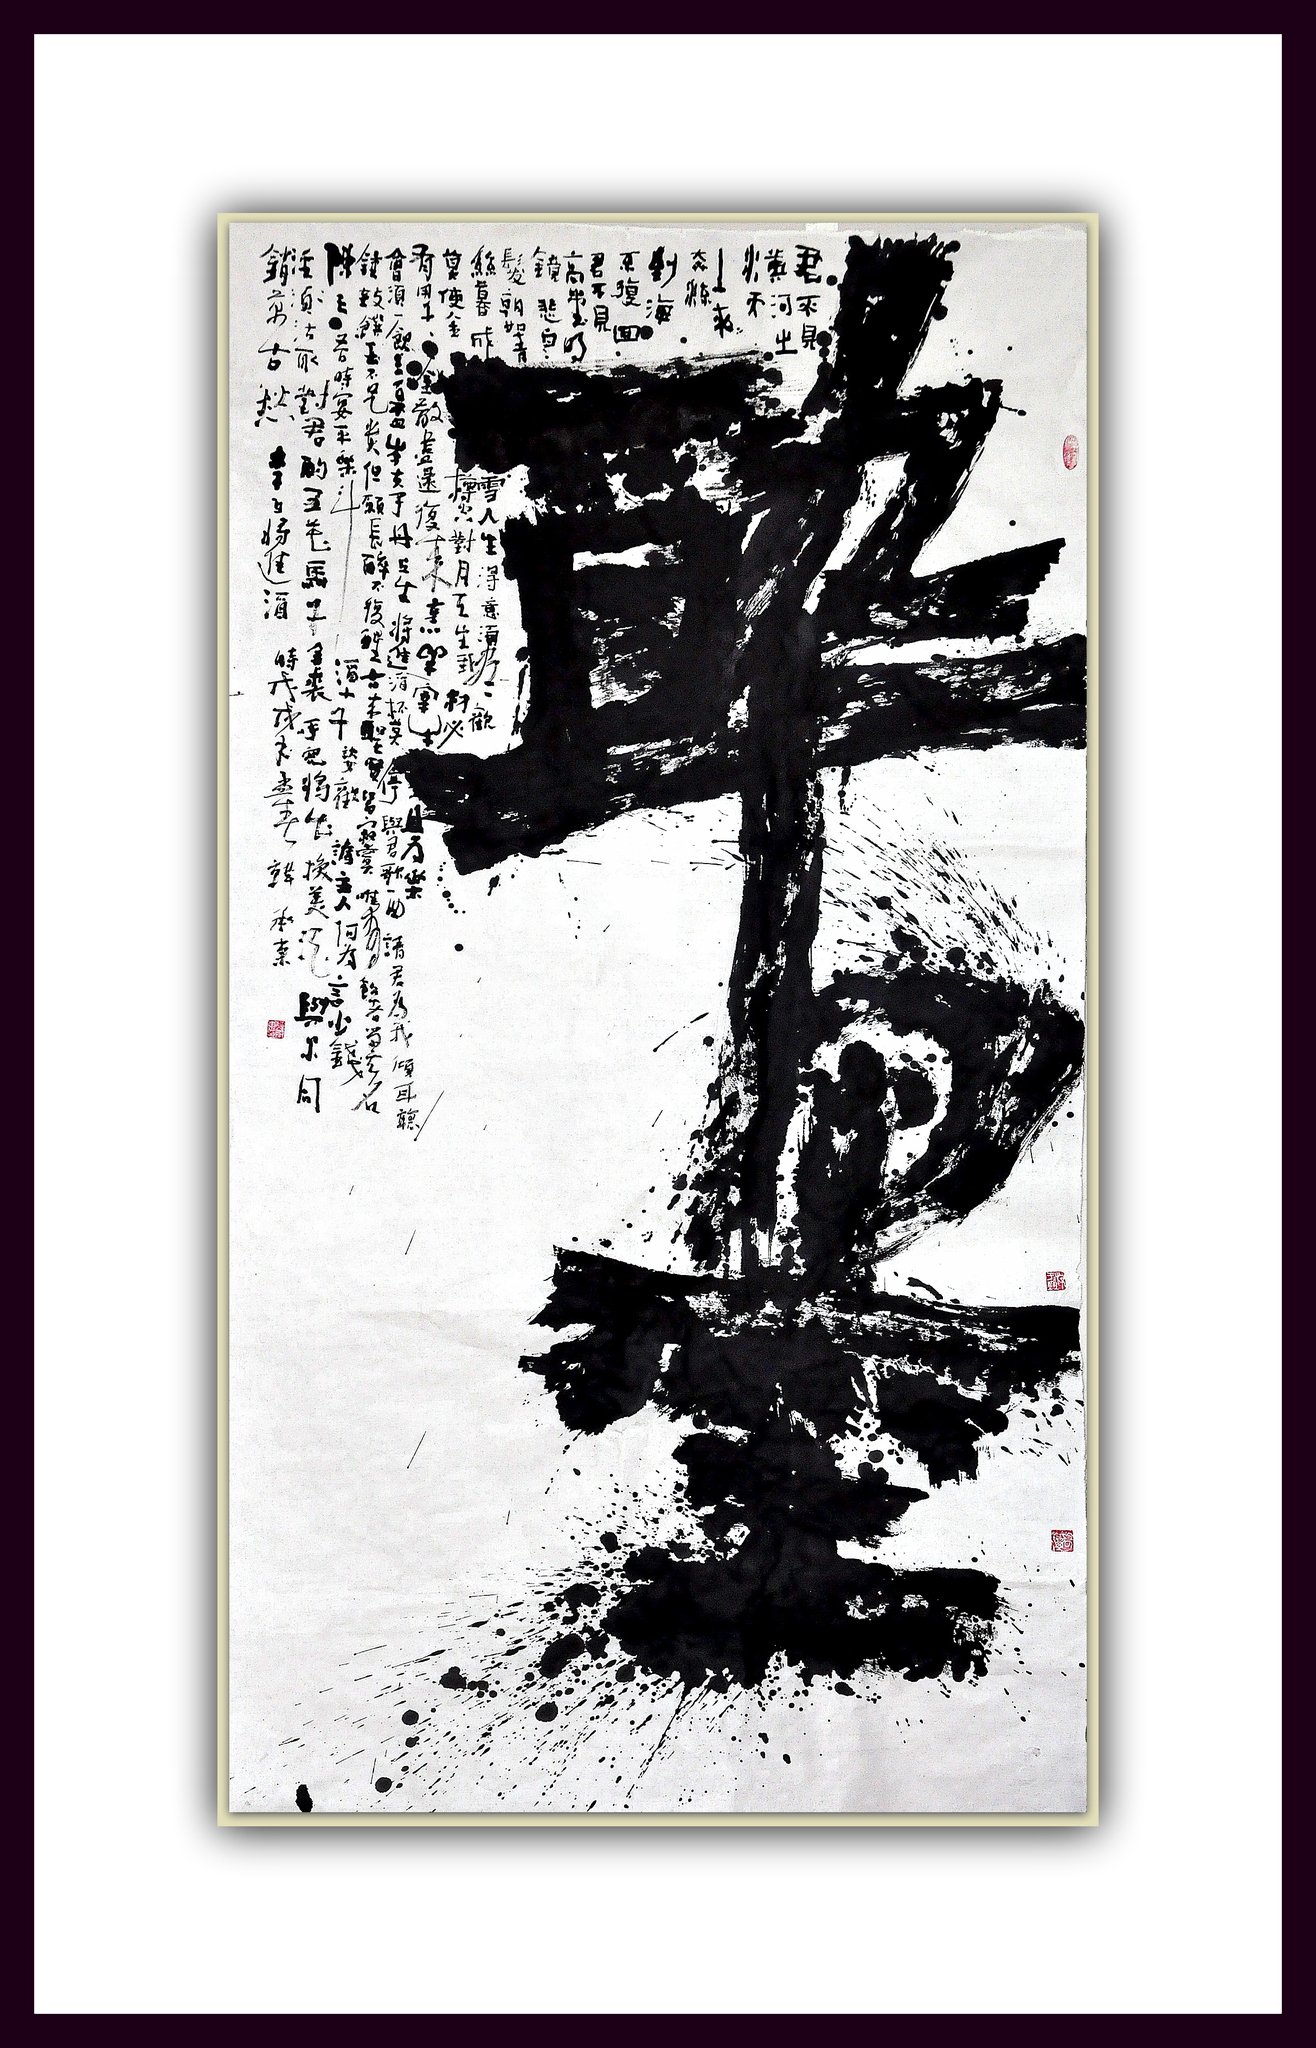 君不見
黃河之
水天
上來
奔流
到海
不復回
君不見
高堂明
鏡悲白
髮朝如青
絲暮成
雪人生得意須盡歡
莫使金
樽空對月天生我材必
有用千金散盡還復來烹羊宰牛且為樂
會須一飲三百杯岑夫子丹丘生將進酒杯莫停與君歌一曲請君為我傾耳聽
鐘鼓饌玉不足貴但願長醉不復醒古來聖賢皆寂寞惟有飲者留其名
陳王昔時宴平樂斗酒十千恣歡謔主人何為言少錢
徑須沽取對君酌五花馬千金裘呼兒將出換美酒與爾同
銷萬古愁 李白將進酒 時戊戌年孟春 韓